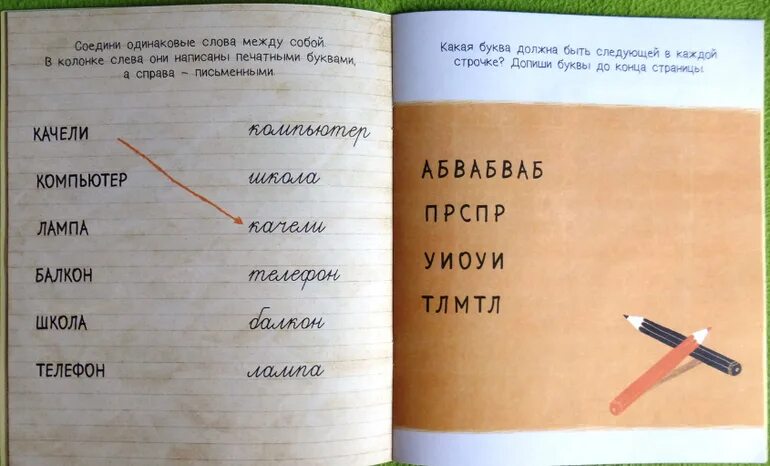 Соедини одинаковые слова между собой.
В колонке слева они написаны печатными буквами,
а справа – письменными.
КАЧЕЛИ компьютер
КОМПЬЮТЕР школа
ЛАМПА качели
БАЛКОН телефон
ШКОЛА балкон
ТЕЛЕФОН лампа
Какая буква должна быть следующей в каждой
строчке? Допиши буквы до конца страницы.
АБВАБВАБ
ПРСПР
УИОУИ
ТЛМТЛ